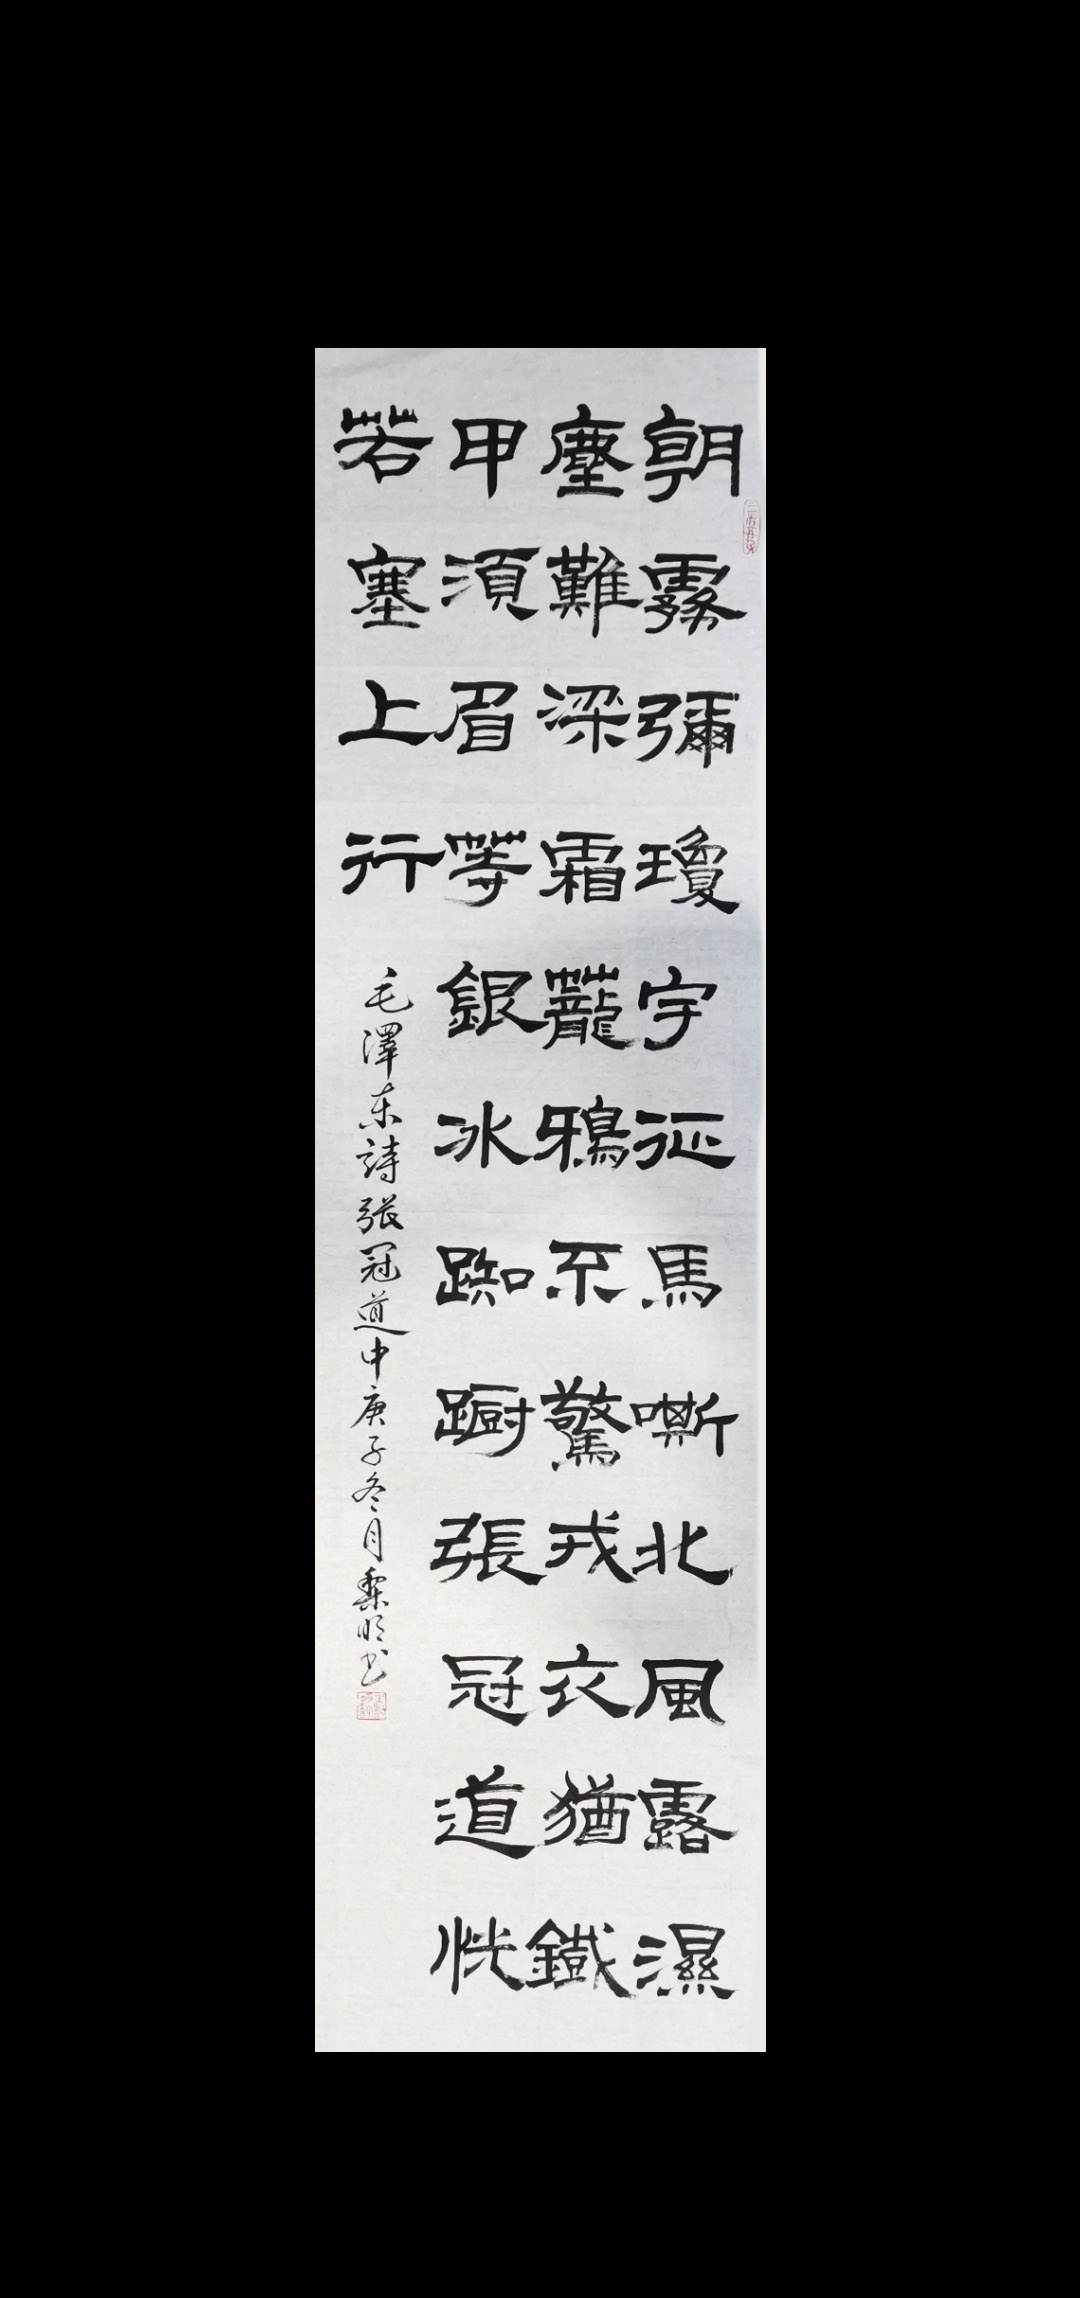 朝霧彌瓊宇征馬嘶北風露濕
塵難深霜蘢鴉不驚戎衣猶鐵
甲須眉等銀冰踟躕張冠道恍
若塞上行
毛澤东詩張冠道中庚子冬月黎明书